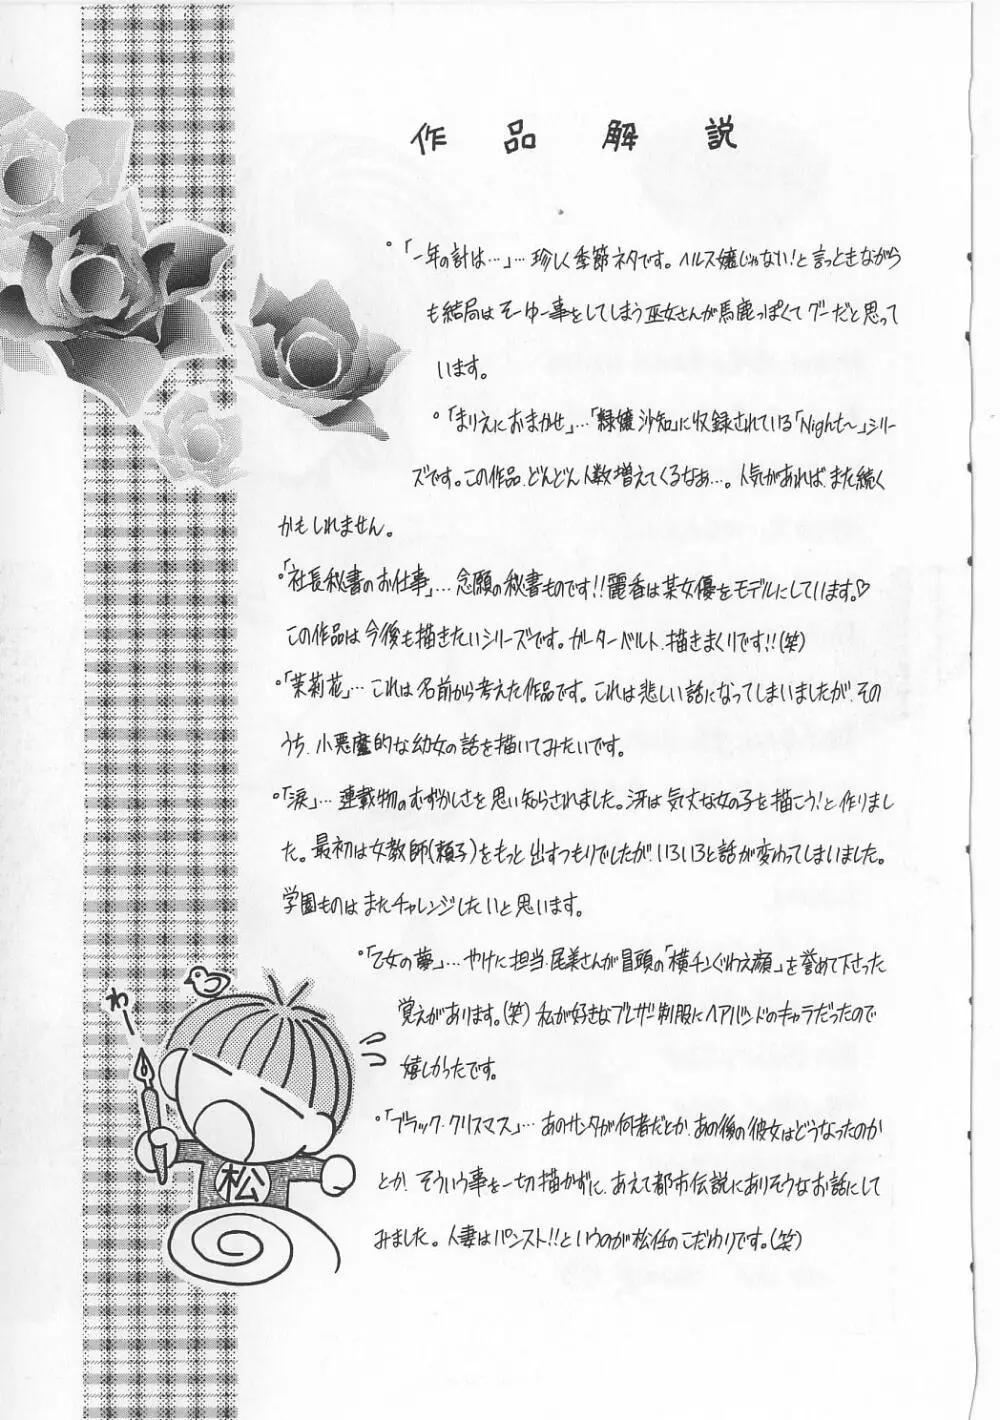 作品解説
•「一年の計は…」…珍しく季節ネタです。ヘルス嬢じゃない!と言っときながら
も結局はそーゆー事をしてしまう巫女さんが馬鹿っぽくてグーだと思って
います。
•「まりえにおまかせ」…「隷嬢沙知」に収録されている「Night〜」シリー
ズです。この作品、どんどん人数増えてくるなぁ…。人気があれば、また続く
かもしれません。
•「社長秘書のお仕事」…念願の秘書ものです!!麗香は某女優をモデルにしています♡
この作品は今後も描きたいシリーズです。ガーターベルト、描きまくりです!!(笑)
•「茉莉花」…これは名前から考えた作品です。これは悲しい話になってしまいましたが、その
うち、小悪魔的な幼女の話を描いてみたいです。
•「涙」…連載物のむずかしさを思い知らされました。冴は気丈な女の子を描こう!と作りまし
た。最初は女教師(頼子)をもっと出すつもりでしたが、いろいろと話が変わってしまいました。
学園ものはまたチャレンジしたいと思います。
•「乙女の夢」…やけに担当・尾美さんが冒頭の「横チンぐわえ顔」を誉めて下さった
覚えがあります。(笑)私が好きなブレザー制服にヘアバンドのキャラだったので
嬉しかったです。
•「ブラック・クリスマス」…あのサンタが何者だとか、あの後の彼女はどうなったのか
とか、そういう事を一切描かずに、あえて都市伝説にありそうなお話にして
みました。人妻はパンスト!!というのが松任のこだわりです。(笑)
わー
松